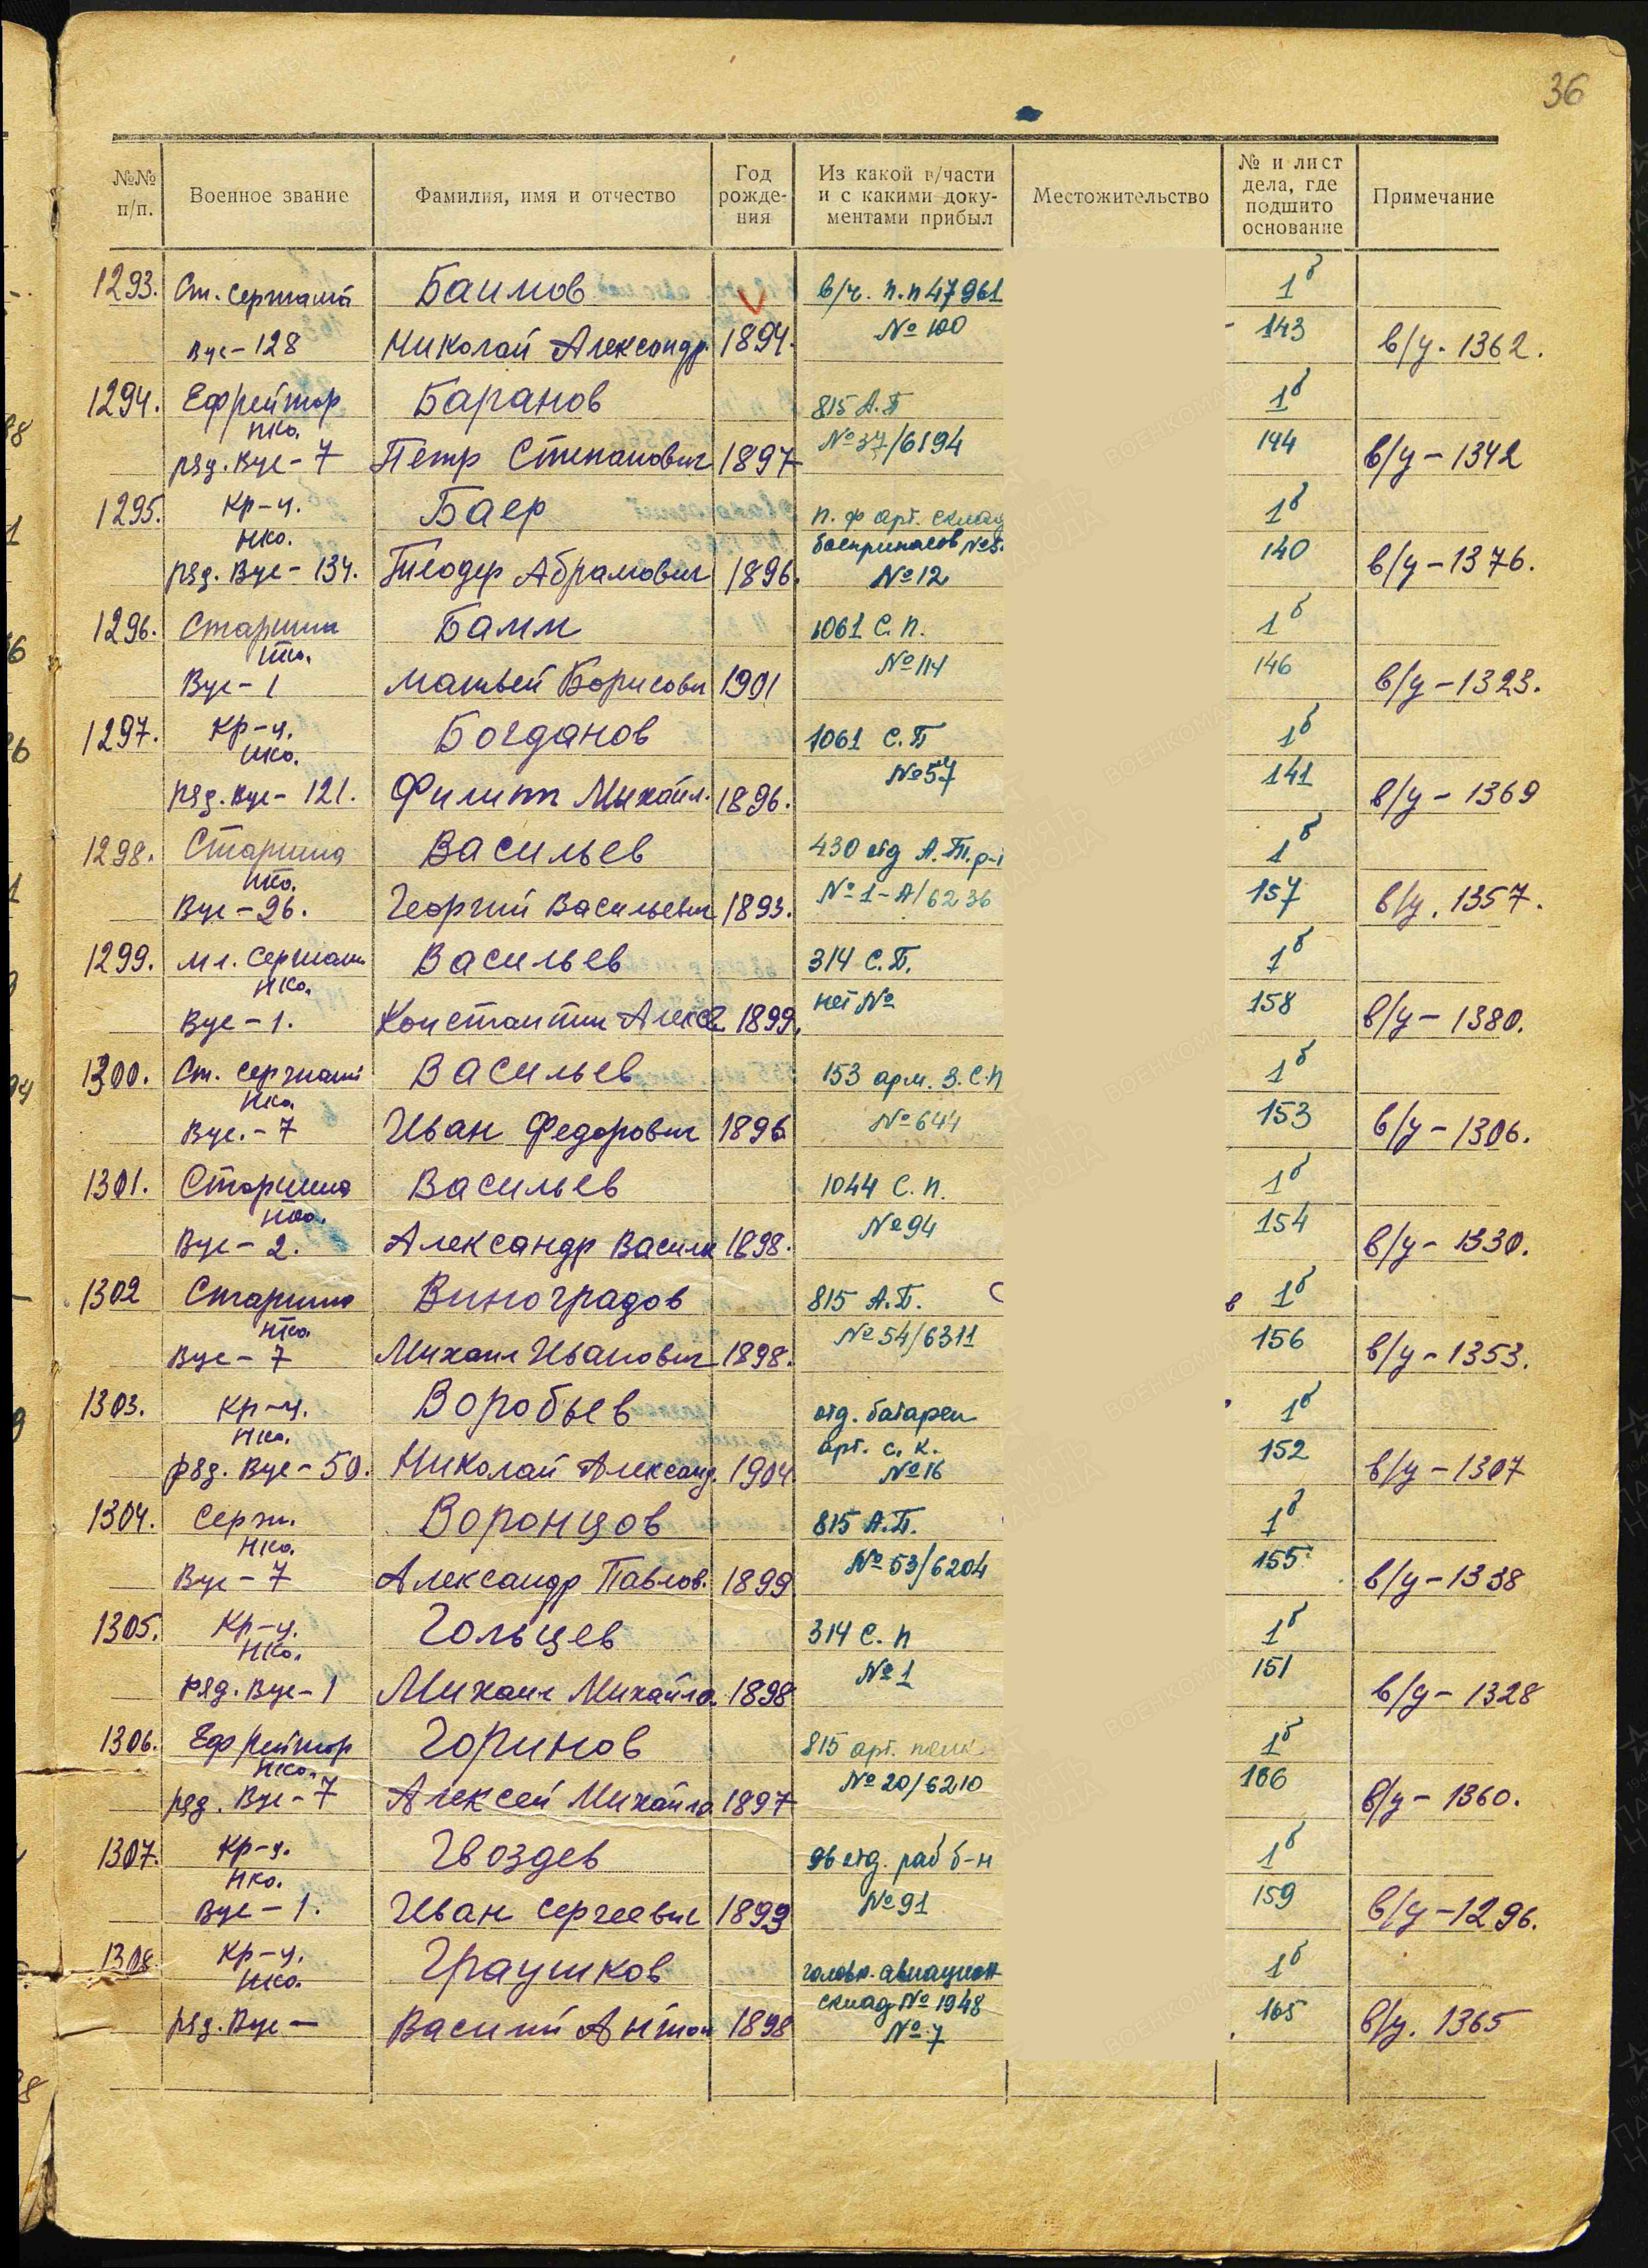 36
№№ п/п. Военное звание Фамилия, имя и отчество Год рождения Из какой в/части и с какими документами прибыл Местожительство № и лист дела, где подшито основание Примечание
1293. Ст. сержант Баимов в/ч. п.п 47961 1б
Вус-128 Николай Александр. 1894. № 100 143 в/у. 1362.
1294. Ефрейтор Баранов 815 А.П 1б
нко. №37/6194
ряд. Вус-7 Петр Степанович 1897 144 в/у-1342
1295. Кр-ц. Баер п. ф арт. склад 1б
нко. боеприпасов
ряд. Вус-134. Теодер Абрамович 1896. №12 140 в/у-1376.
1296. Старшина Бамм 1061 С.п. 1б
нко. №114
Вус-1 Матвей Борисови 1901 146 в/у-1323.
1297. Кр-ц. Богданов 1061 С.П 1б
нко. №57
ряд. Вус-121. Филипп Михайл. 1896. 141 в/у-1369
1298. Старшина Васильев 430 отд А.Т.р-н 1б
нко. №1-А/6236
Вус-26. Георгий Васильевич 1893. 157 в/у. 1357.
1299. мл. Сержант Васильев 314 С.П. 1б
нко. нет №
Вус-1. Константин Алекс 1899. 158 в/у-1380.
1300. Ст. сержант Васильев 153 арм. З.С.П 1б
нко. №644
Вус.-7 Иван Федорович 1896 153 в/у-1306.
1301. Старшина Васильев 1044 С.п. 1б
нко. №94
Вус-2. Александр Васил 1898. 154 в/у-1330.
1302 Старшина Виноградов 815 А.П. 1б
нко. №54/6311
Вус-7 Михаил Иванович 1898. 156 в/у-1353.
1303. Кр-ц. Воробьев отд. батареи 1б
нко. арт. с. к.
ряд. Вус-50. Николай Александ. 1904 №16 152 в/у-1307
1304. Серж. Воронцов 815 А.П. 1б
нко. №53/6204
Вус-7 Александр Павлов. 1899 155 в/у-1338
1305. Кр-ц. Гольцев 314 С.п 1б
нко. №1
ряд. Вус-1 Михаил Михайло. 1898 151 в/у-1328
1306. Ефрейтор Горинов 815 арт. полк 1б
нко. №20/6210
ряд. Вус-7 Алексей Михайло 1897 166 в/у-1360.
1307. Кр-ц. Гвоздев 96 отд. раб б-н 1б
нко. №91
Вус-1. Иван Сергеевич 1899 159 в/у-1296.
1308. Кр-ц. Граушков головн. авиацион 1б
нко. склад №1948
ряд. Вус- Василий Антон 1898 №7 165 в/у. 1365